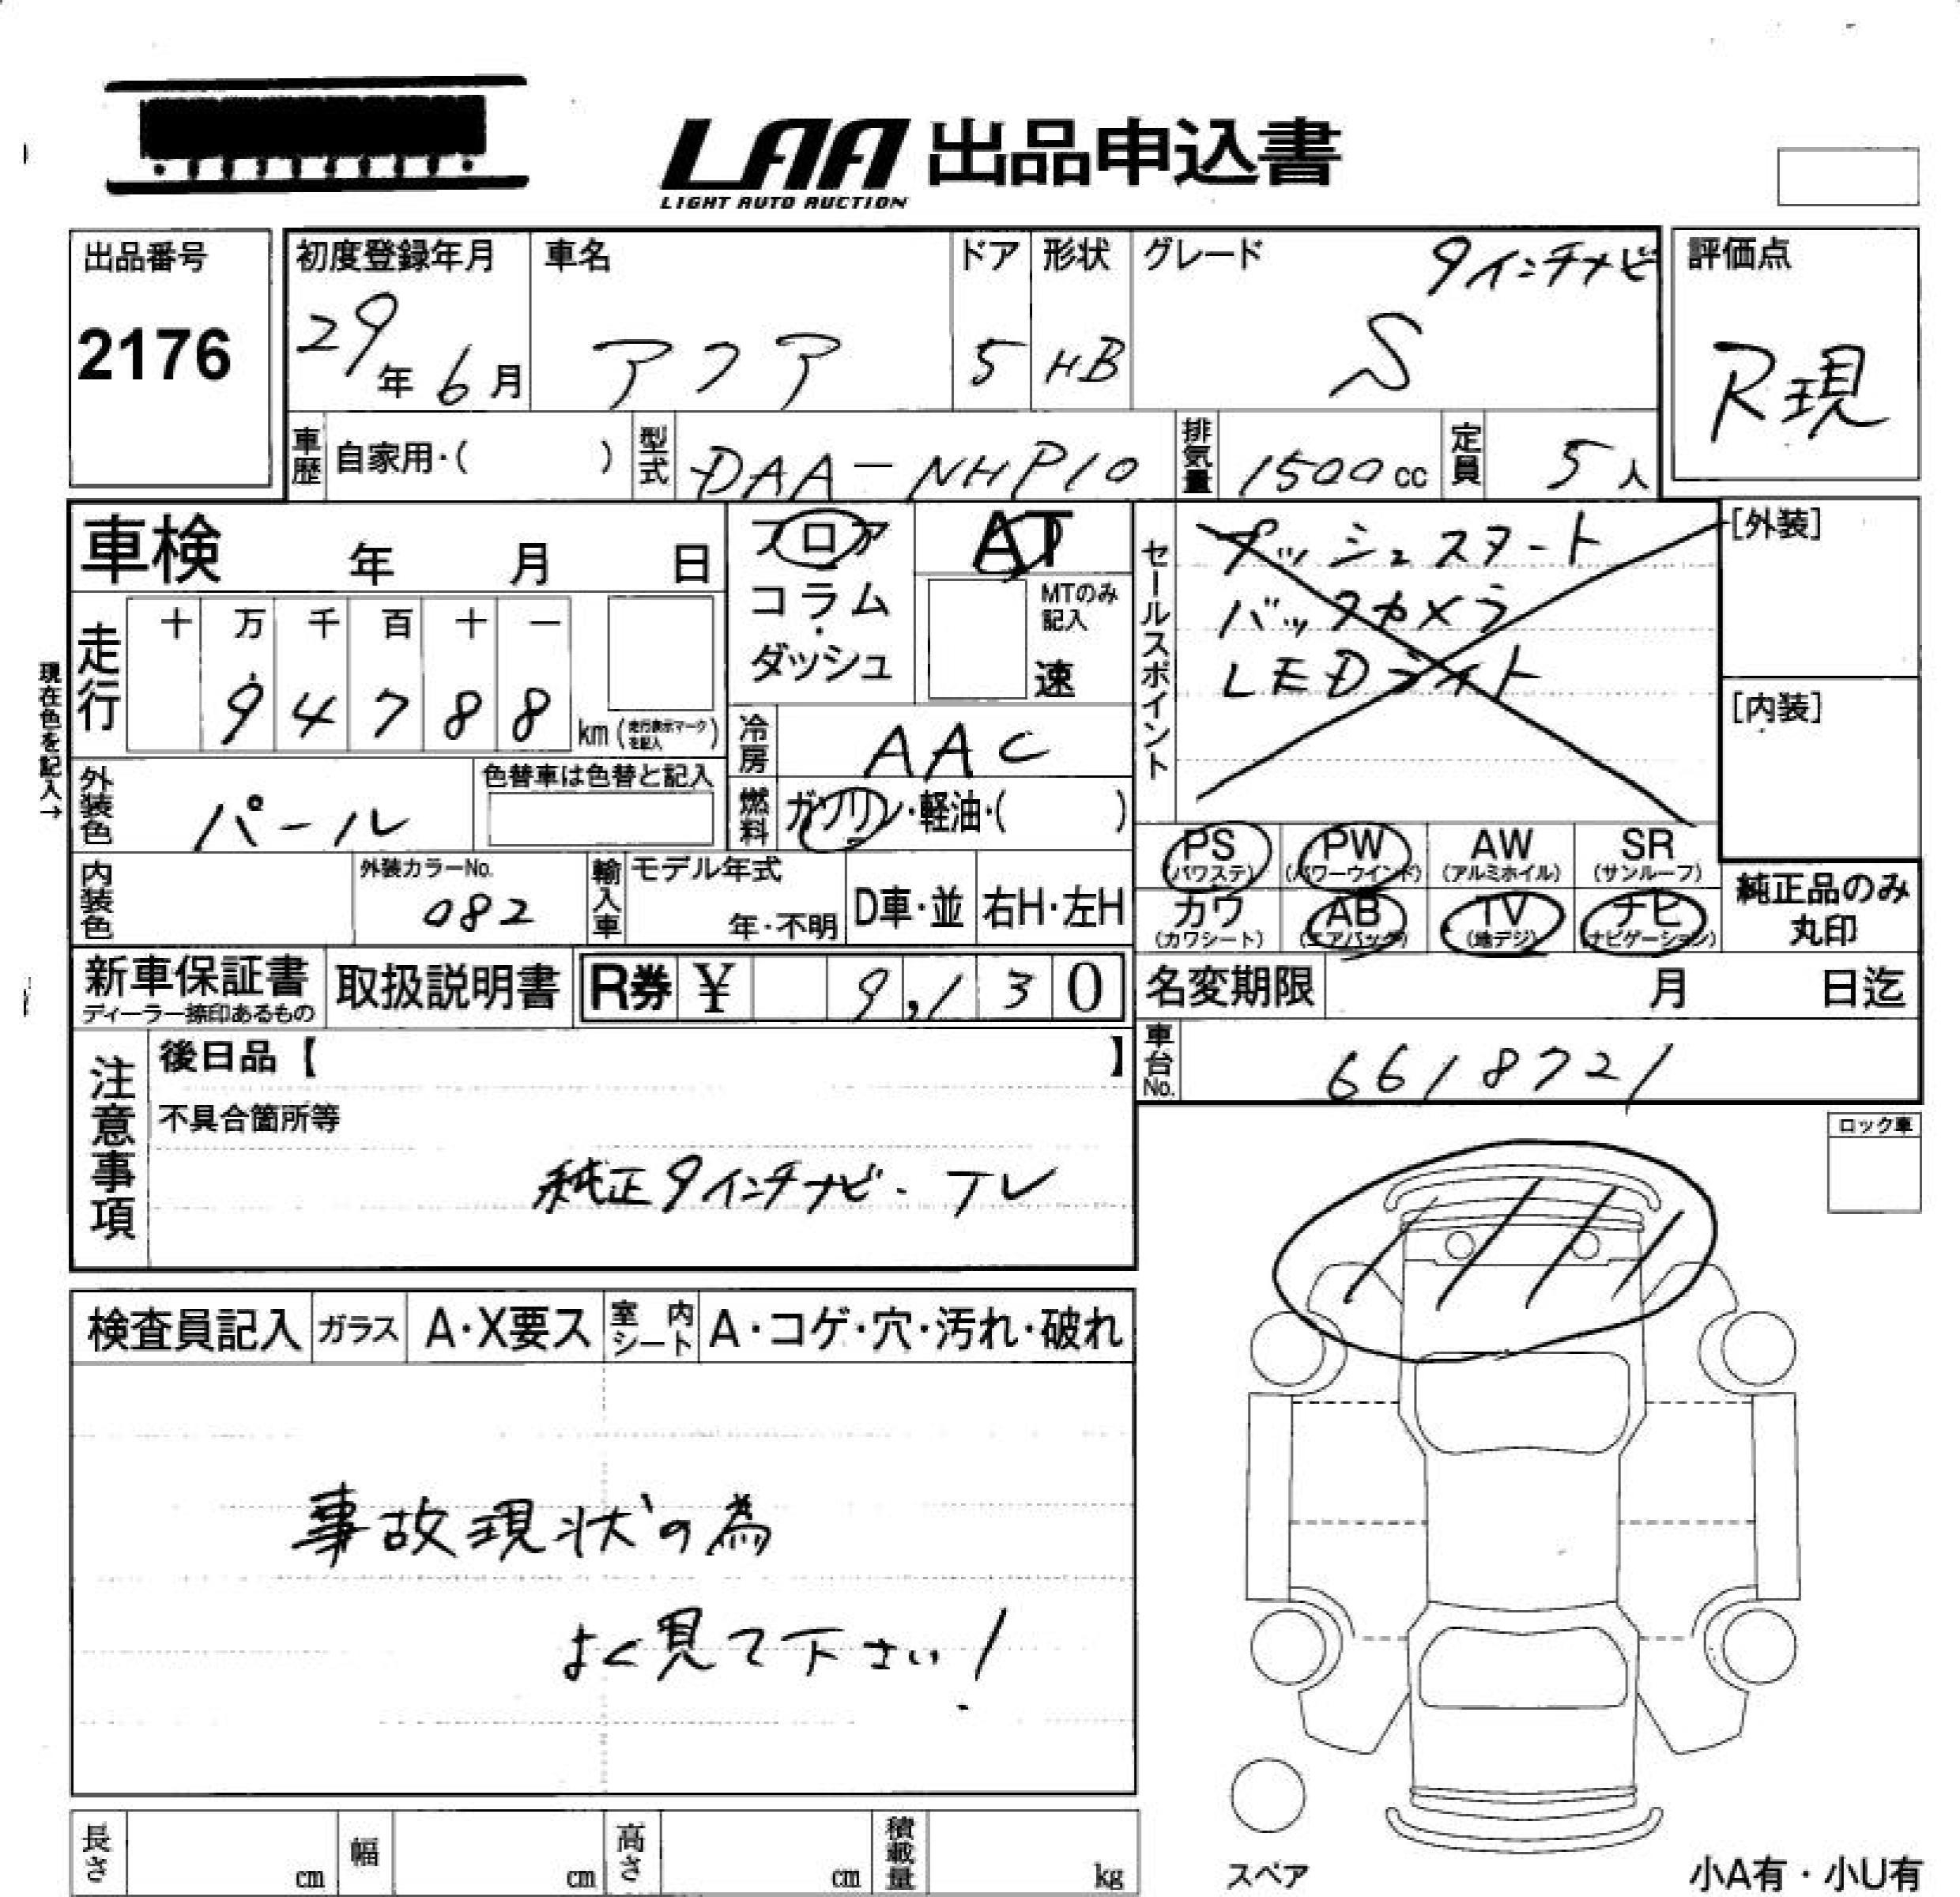 LAA 出品申込書
LIGHT AUTO AUCTION
出品番号
2176
初度登録年月
29年6月
車名
アクア
ドア
5
形状
HB
グレード
9インチナビ
S
評価点
R現
車歴 自家用・( )
型式 DAA-NHP10
排気量 1500cc
定員 5人
車検 年 月 日
フロア
コラム
・
ダッシュ
AT
MTのみ
記入
速
セールスポイント
プッシュスタート
バックカメラ
LEDライト
[外装]
[内装]
現在色を記入→
走行
十 万 千 百 十 一
9 4 7 8 8
km (走行表示マークを記入)
冷房 AAC
外装色 パール
色替車は色替と記入
燃料 ガソリン・軽油・( )
PS (パワステ)
PW (パワーウインド)
AW (アルミホイル)
SR (サンルーフ)
カワ (カワシート)
AB (エアバッグ)
TV (地デジ)
ナビ (ナビゲーション)
純正品のみ
丸印
内装色
外装カラーNo.
082
輸入車
モデル年式
年・不明
D車・並
右H・左H
新車保証書
ディーラー捺印あるもの
取扱説明書
R券 ¥ 9,130
名変期限 月 日迄
車台No. 6618721
注意事項
後日品【 】
不具合箇所等
純正9インチナビ・TV
ロック車
検査員記入
ガラス
A・X要ス
室内シート
A・コゲ・穴・汚れ・破れ
事故現状の為
よく見て下さい!
長さ cm
幅 cm
高さ cm
積載量 kg
スペア
小A有・小U有